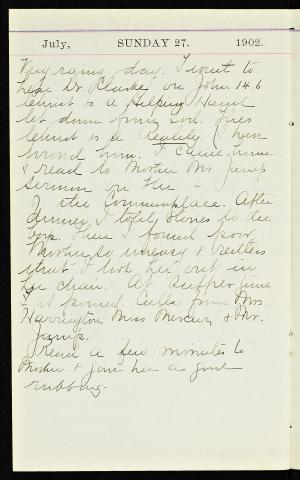 July, SUNDAY 27. 1902.
Very rainy day. I went to
hear Dr. Clarke on John 14.6
Christ is a Helping Hand
let down from God. Jesus
Christ is a Reality. I have
him. I came home
& read to Mother Mr. Jump's
sermon on the
the Commonplace. After
dinner I told stories to the
boys. Then I found poor
Mother so uneasy & restless
that I took her out in
the chair. At supper time
it poured. Calls from Mrs
Harrington, Miss Mercur, & Mr.
Jump.
Read a few minutes to
Mother & gave her a good
rubbing.